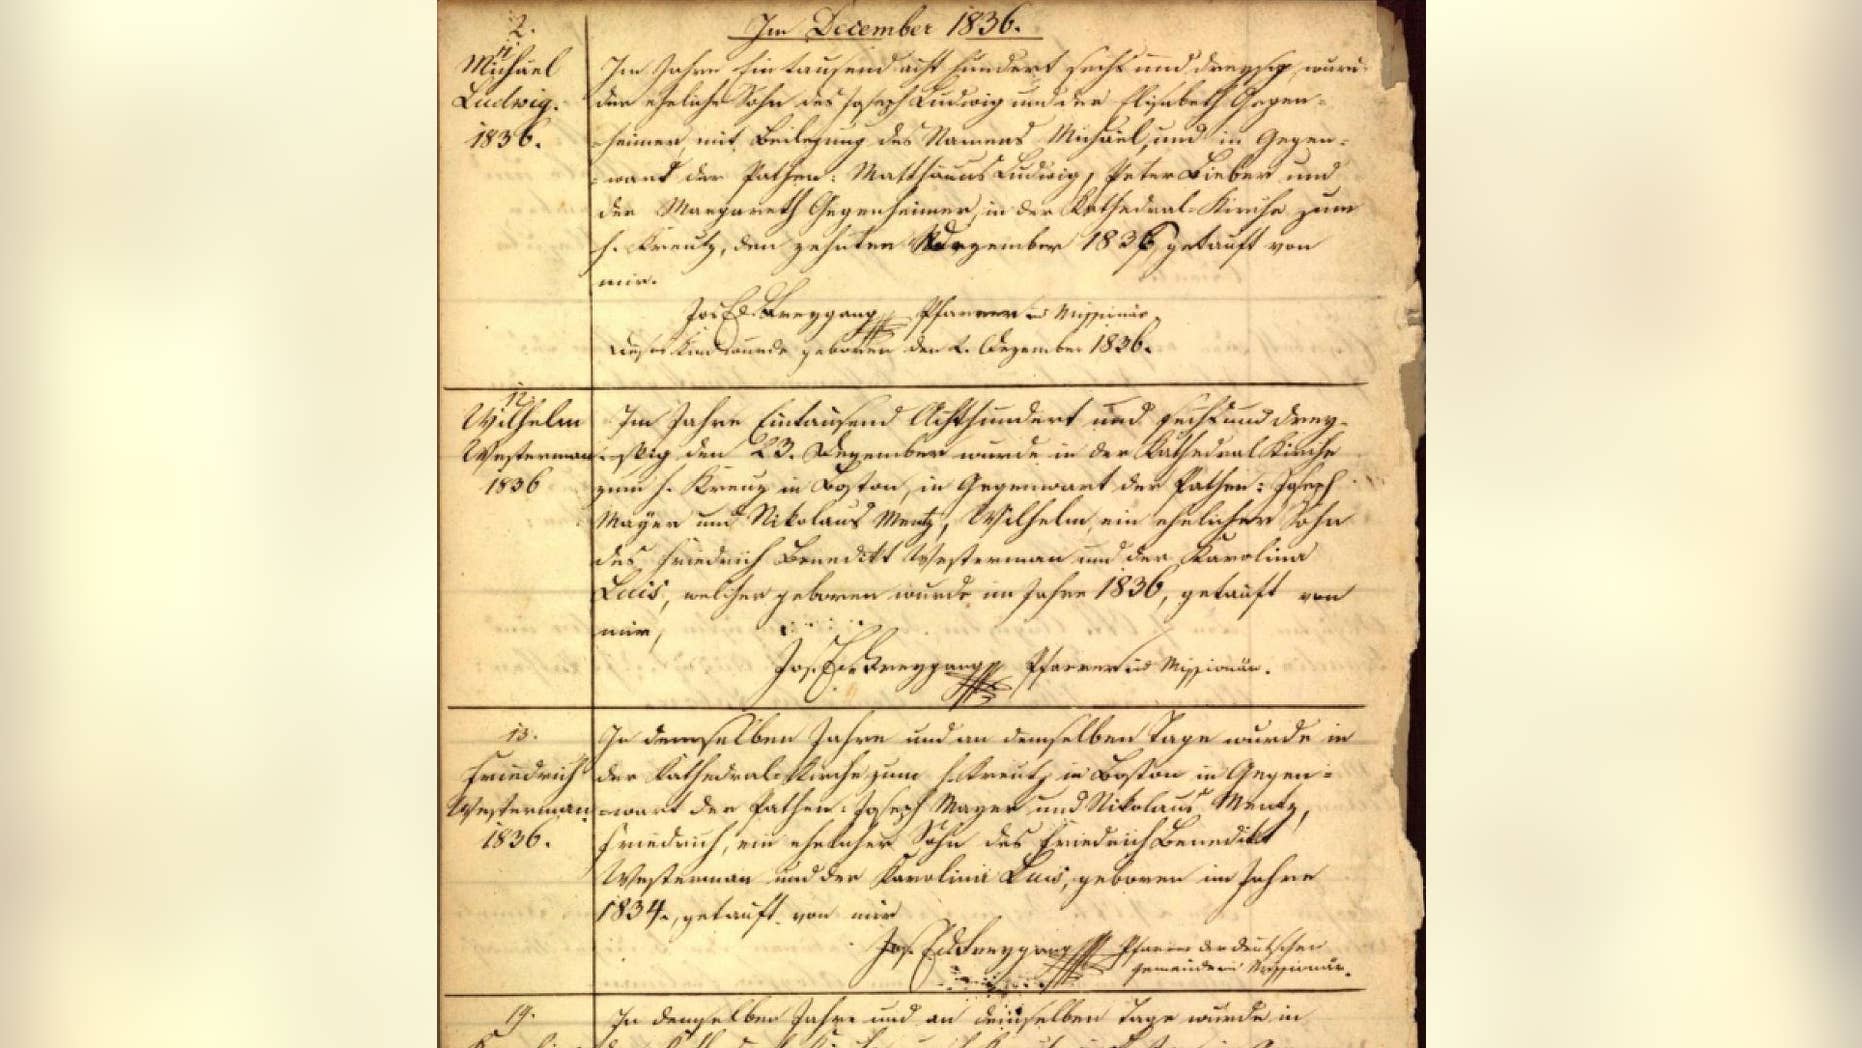 2.
Im December 1836.
11.
Michael
Ludwig.
1836.
Im Jahre Ein tausend acht hundert sechs und dreysig wurde
der eheliche Sohn des Joseph Ludwig und der Elisabeth Gegen=
heimer, mit Beilegung des Namens Michael, und in Gegen=
=wart der Pathen: Matthäus Ludwig, Peter Bieber und
der Margareth Gegenheimer, in der Kathedral-Kirche zum
h. Kreutz, den zehnten Dezember 1836, getauft von
mir.
Jos. Ed. Freygang Pfarrer Missionär.
Dieses Kind wurde geboren den 2. Dezember 1836.
12.
Wilhelm
Westerman
1836
Im Jahre Eintausend Achthundert und sechs und drey-
-ssig den 23. Dezember wurde in der Kathedral Kirche
zum h. Kreuz in Boston, in Gegenwart der Pathen: Joseph
Mayer und Nikolaus Mentz, Wilhelm, ein ehelicher Sohn
des Friedrich Benedikt Westerman und der Karolina
Luis, welcher geboren wurde im Jahre 1836, getauft von
mir,
Jos. Ed. Freygang Pfarrer Missionär.
13.
Friedrich
Westerman
1836.
In demselben Jahre und an demselben Tage wurde in
der Kathedral-Kirche zum h. Kreutz in Boston in Gegen=
=wart der Pathen: Joseph Mayer und Nikolaus Mentz,
Friedrich, ein ehelicher Sohn des Friedrich Benedikt
Westerman und der Karolina Luis, geboren im Jahre
1834., getauft von mir
Jos. Ed. Freygang Pfarrer der deutschen
Gemeinde Missionär.
In demselben Jahre und an demselben Tage wurde in